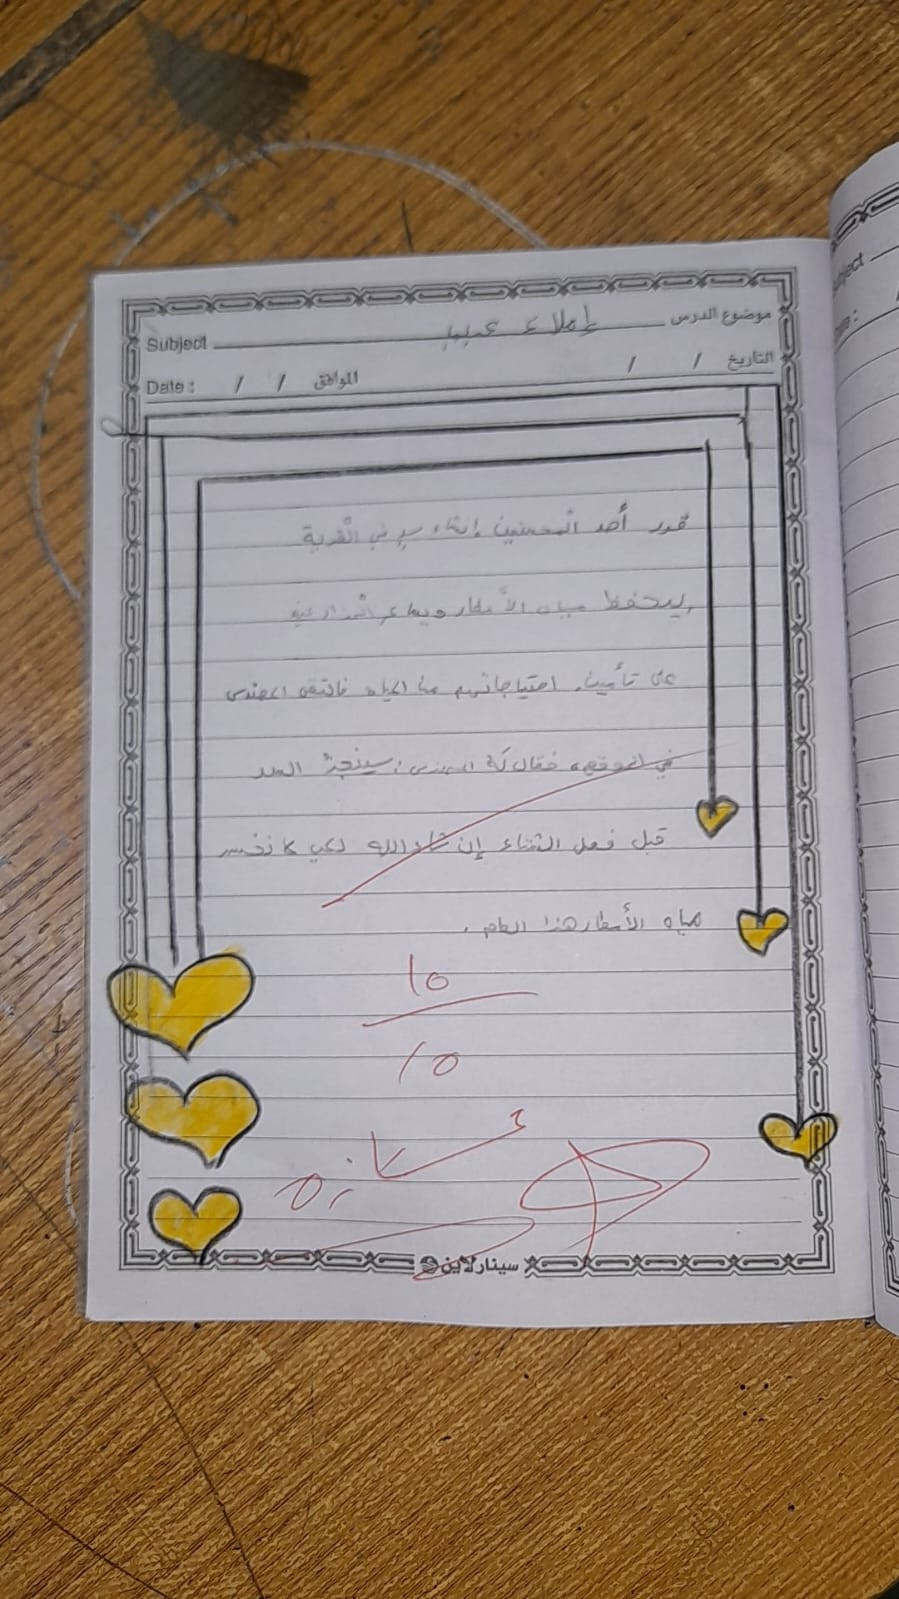 موضوع الدرس إملاء عيب
Subject
التاريخ / /
الموافق / / Date :
قرر أحد المحسنين إنشاء سد في القرية
ليحفظ مياه الأمطار ويساعد المزارعين
على تأمين احتياجاتهم من المياه فالتقى المهندس
في الموقع فقال له المهندس: سينجز السد
قبل فصل الشتاء إن شاء الله لكي لا نخسر
مياه الأمطار هذا العام .
10
10
سينارلاين
bject